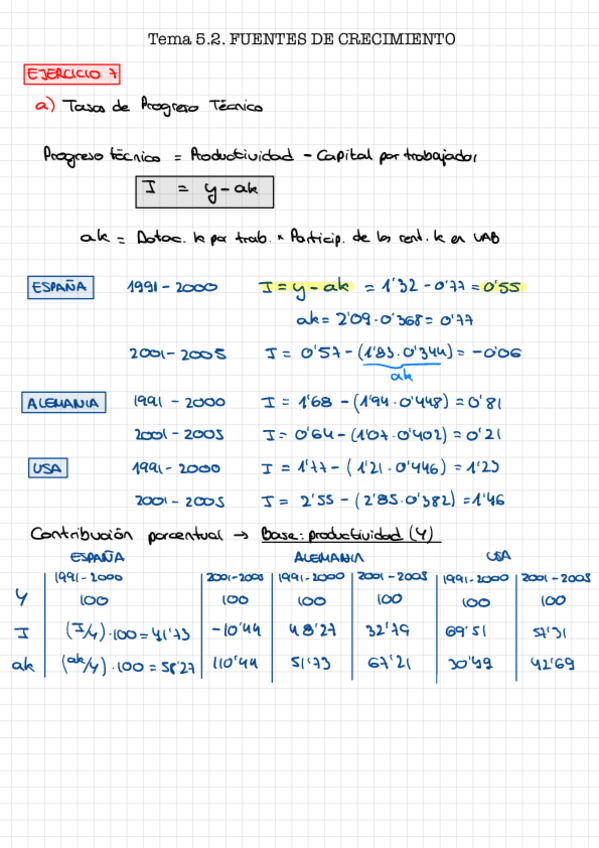 Tema 5.2. FUENTES DE CRECIMIENTO
EJERCICIO 7
a) Tasas de Progreso Técnico
Progreso técnico = Productividad - Capital por trabajador
I = y - ak
ak = Dotac. k por trab. * Particip. de las rent. k en VAB
ESPAÑA 1991-2000 I = y - ak = 1'32 - 0'77 = 0'55
ak = 2'09 · 0'368 = 0'77
2001-2005 I = 0'57 - (1'83 · 0'344) = -0'06
ak
ALEMANIA 1991-2000 I = 1'68 - (1'94 · 0'448) = 0'81
2001-2005 I = 0'64 - (1'07 · 0'402) = 0'21
USA 1991-2000 I = 1'77 - (1'21 · 0'446) = 1'23
2001-2005 I = 2'55 - (2'85 · 0'382) = 1'46
Contribución porcentual → Base: productividad (Y)
ESPAÑA ALEMANIA USA
1991-2000 2001-2005 1991-2000 2001-2005 1991-2000 2001-2005
Y 100 100 100 100 100 100
I (I/y) · 100 = 41'73 -10'44 48'27 32'79 69'51 57'31
ak (ak/y) · 100 = 58'27 110'44 51'73 67'21 30'49 42'69